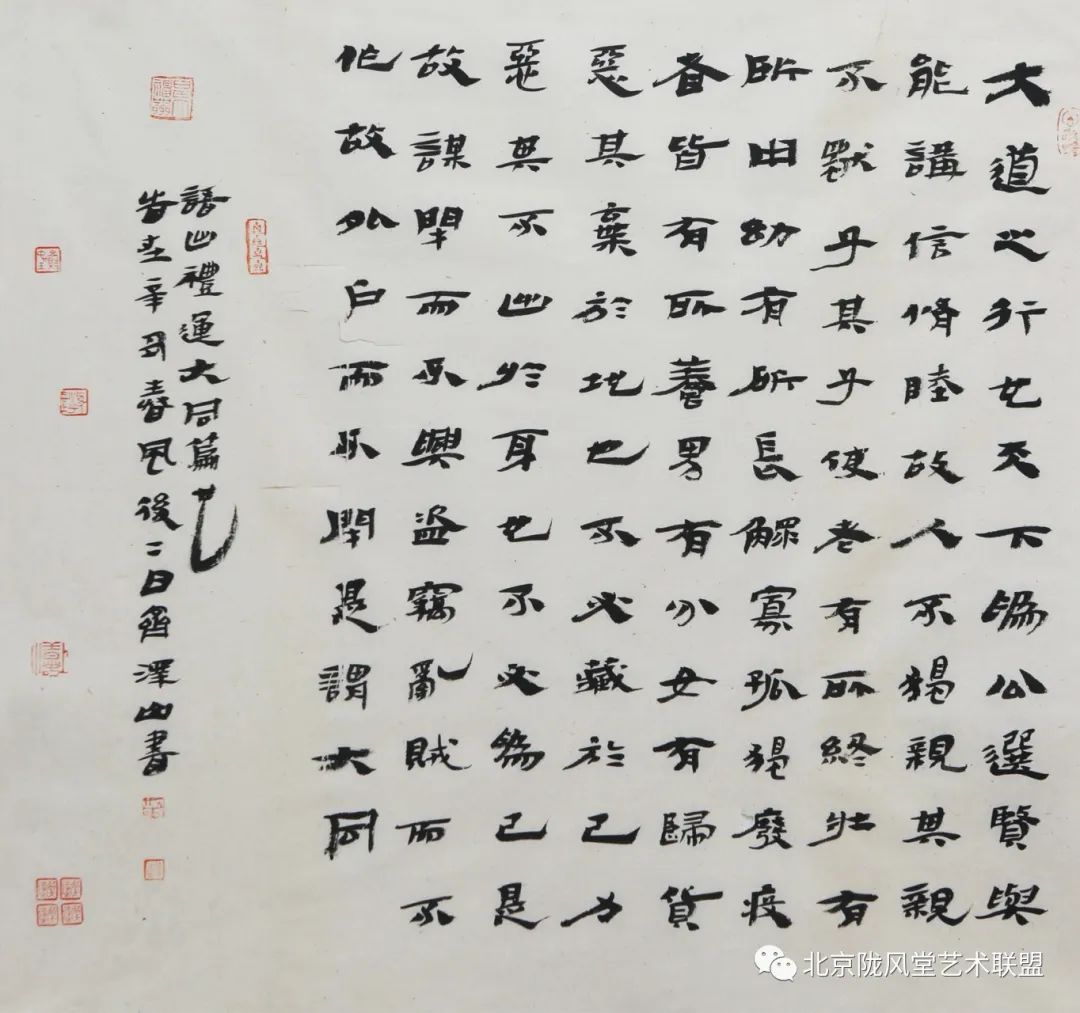 大道之行也天下為公選賢與
能講信脩睦故人不獨親其親
不獨子其子使老有所終壯有
所用幼有所長鰥寡孤獨廢疾
者皆有所養男有分女有歸貨
惡其棄於地也不必藏於己力
惡其不出於身也不必為己是
故謀閉而不興盜竊亂賊而不
作故外户而不閉是謂大同
語出禮運大同篇也
旹在辛丑春風後二日齊澤山書
北京陇风堂艺术联盟